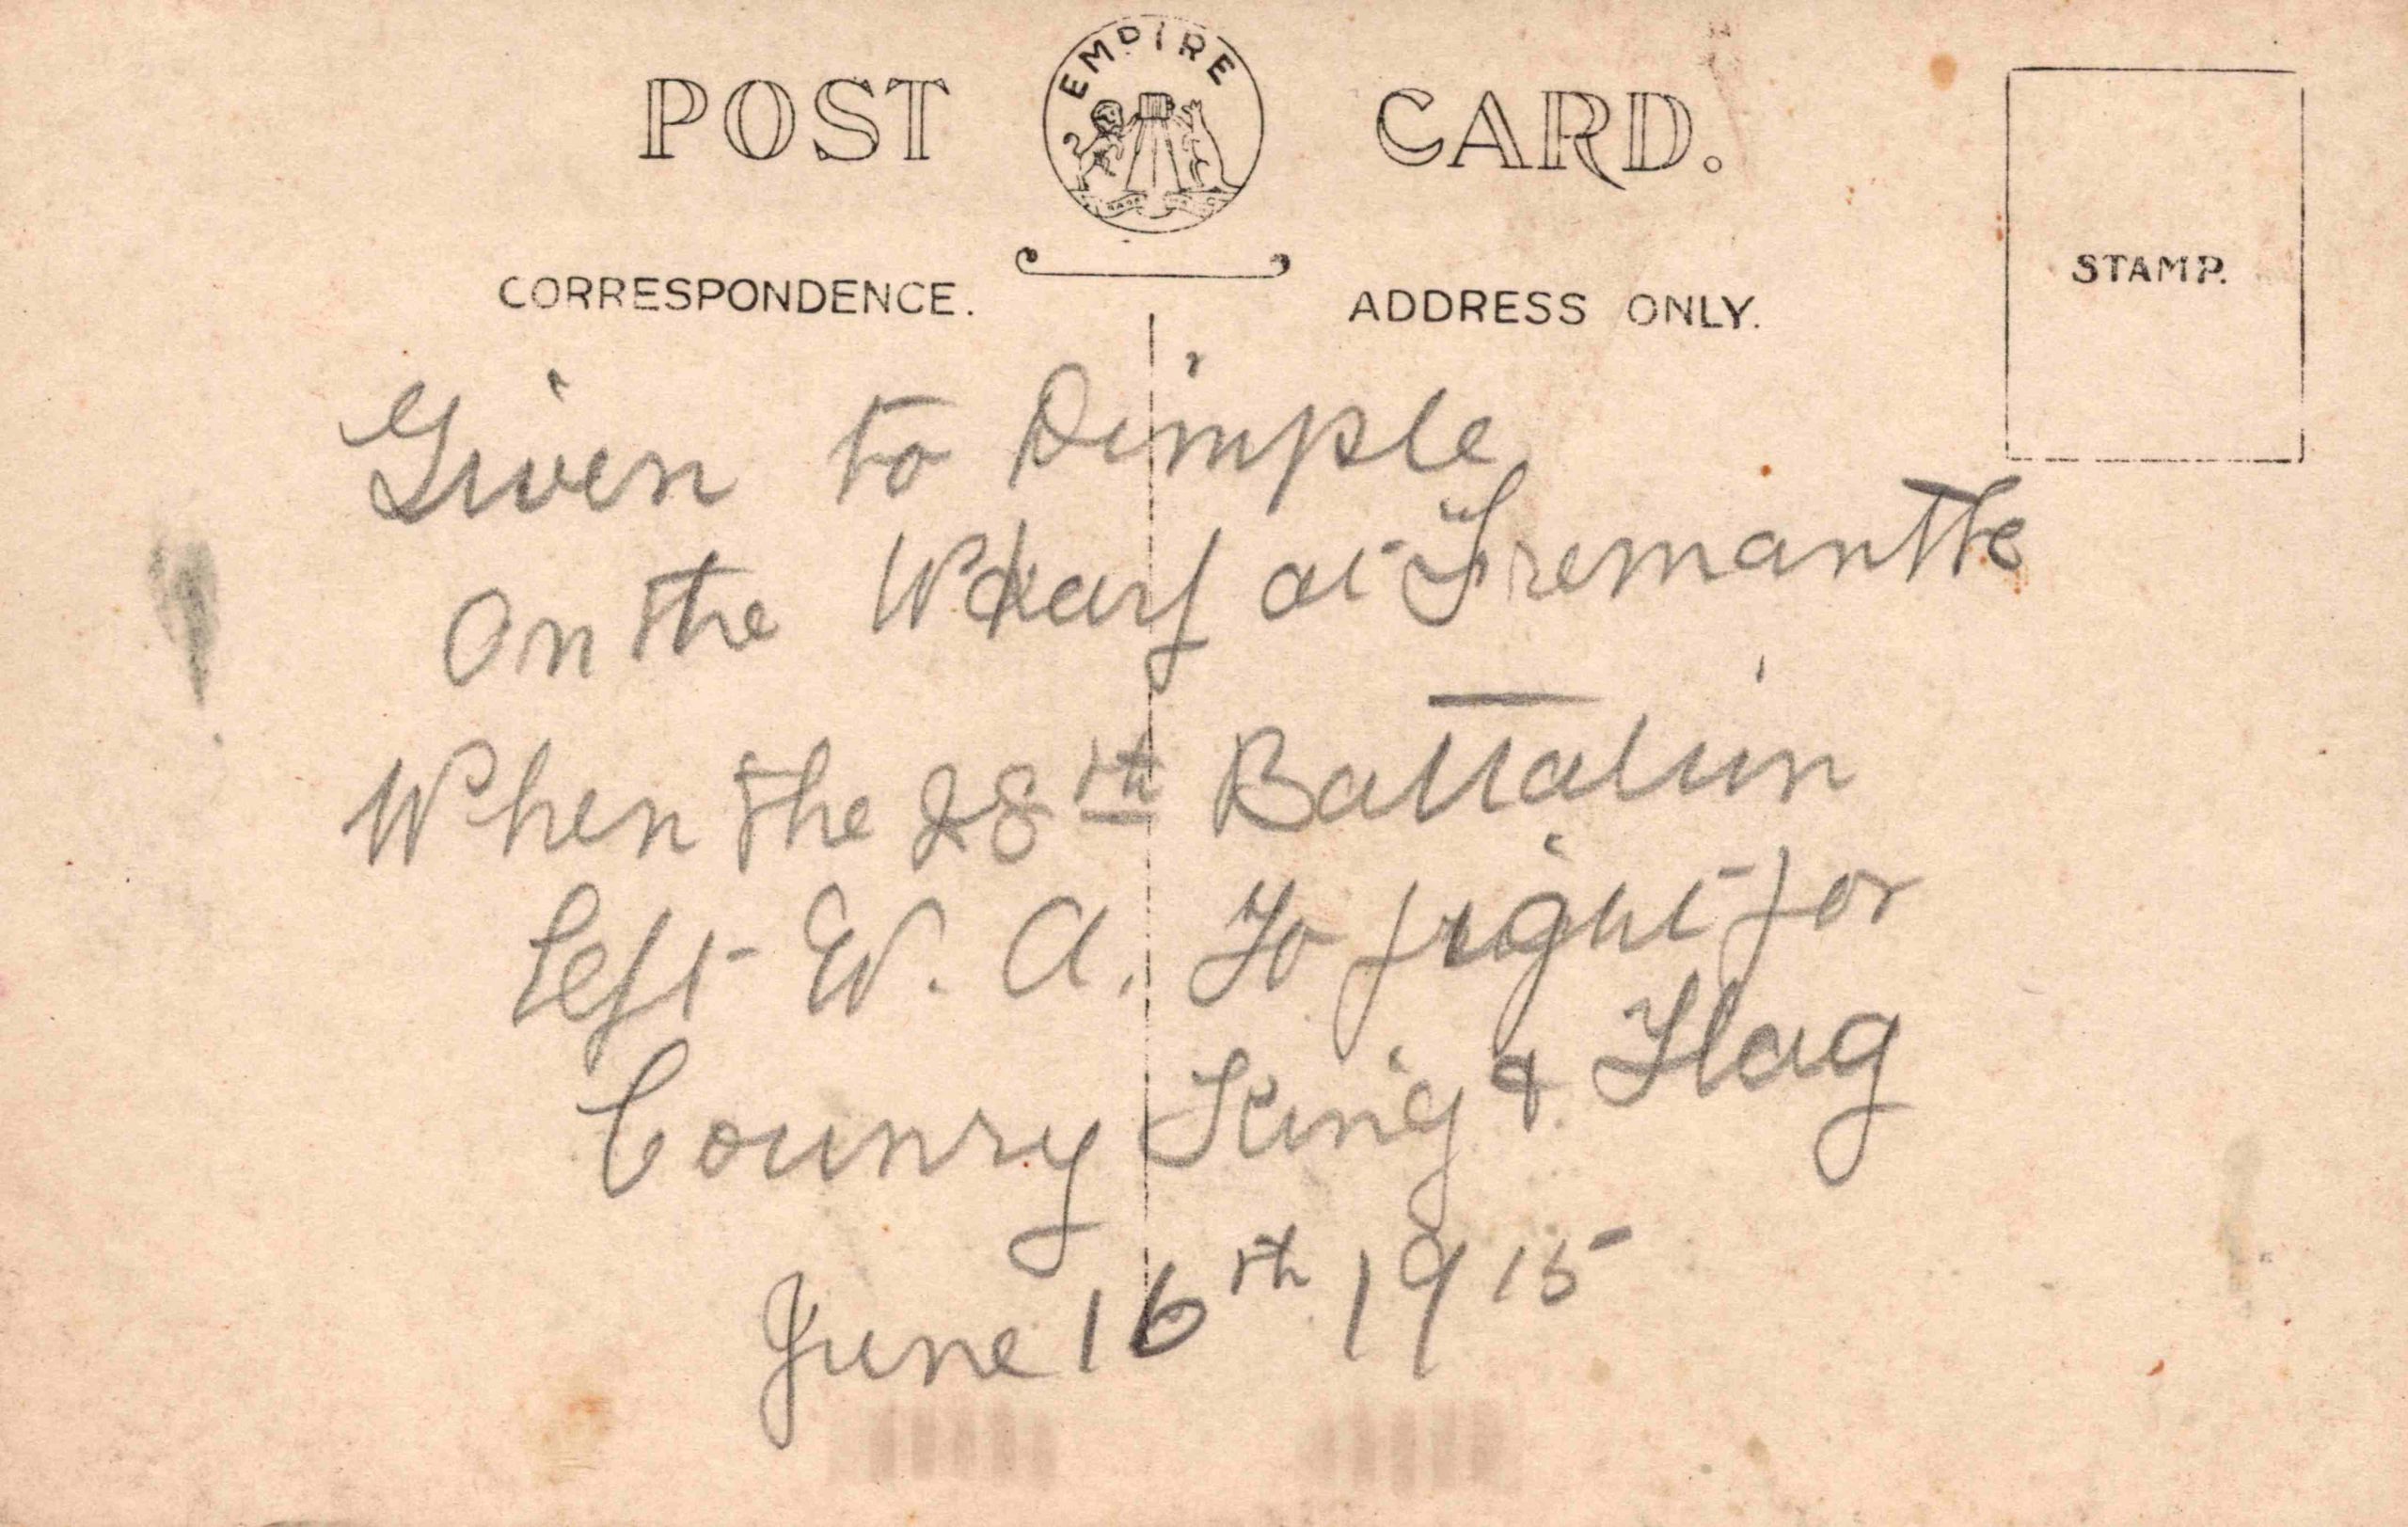 EMPIRE
POST CARD.
CORRESPONDENCE.
ADDRESS ONLY.
STAMP.
Given to Dimple
On the Wharf at Fremantle
When the 28th Battalion
Left W. A. To fight for
Counry King & Flag
June 16th 1915